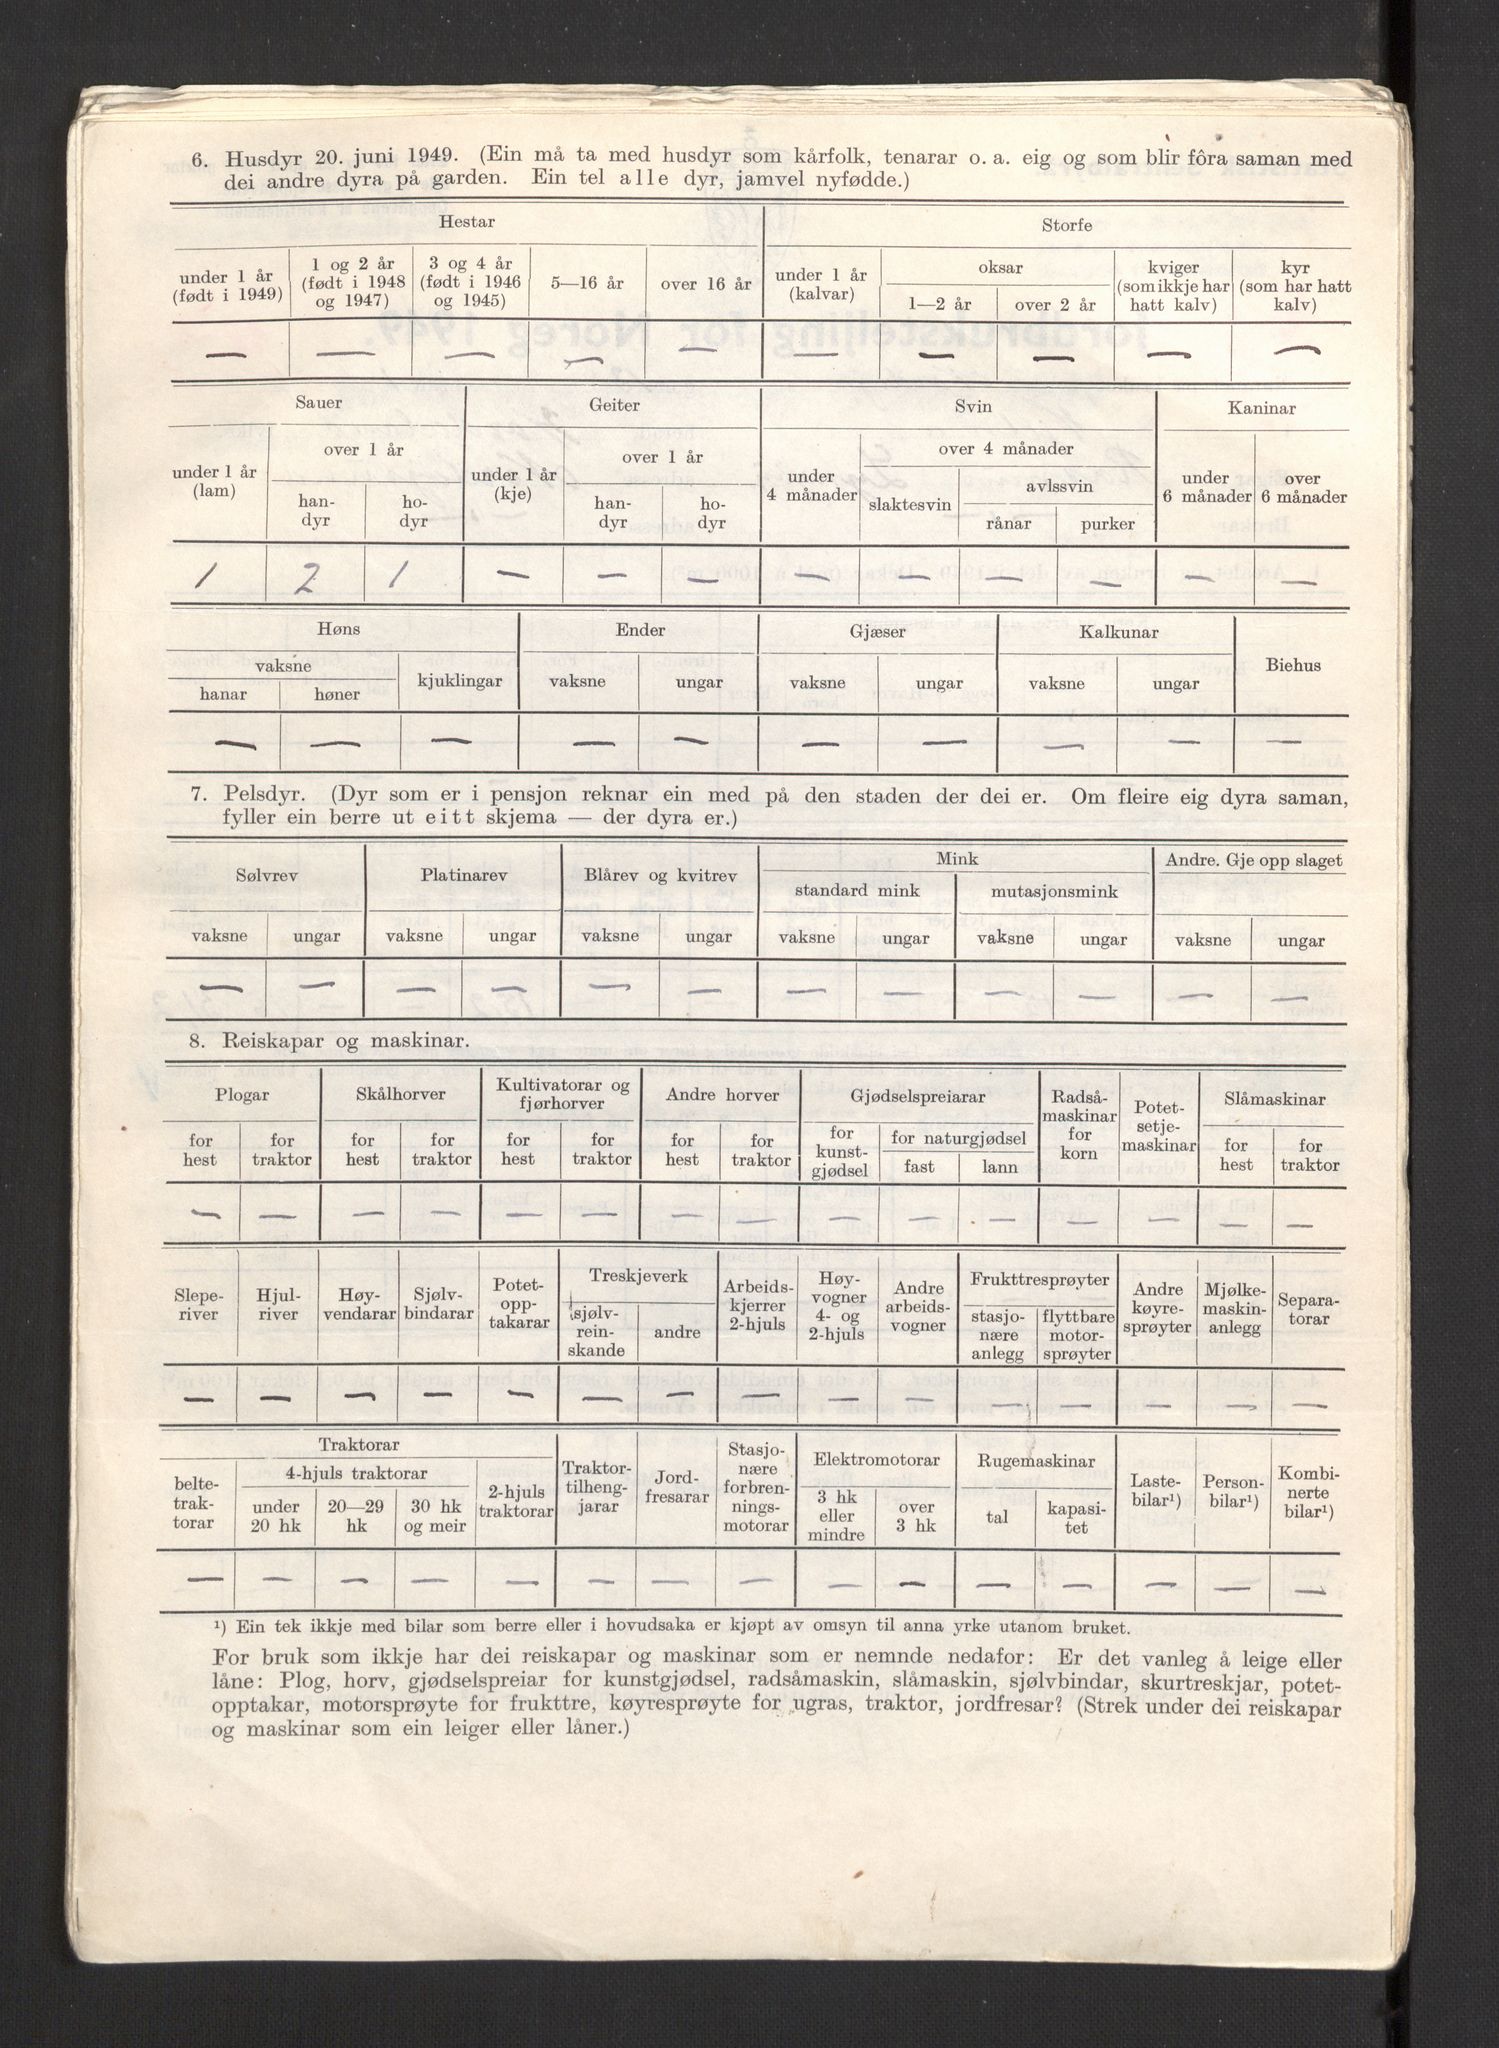 6. Husdyr 20. juni 1949. (Ein må ta med husdyr som kårfolk, tenarar o. a. eig og som blir fôra saman med
dei andre dyra på garden. Ein tel alle dyr, jamvel nyfødde.)
Hestar Storfe
under 1 år (født i 1949) 1 og 2 år (født i 1948 og 1947) 3 og 4 år (født i 1946 og 1945) 5—16 år over 16 år under 1 år (kalvar) oksar 1—2 år over 2 år kviger (som ikkje har hatt kalv) kyr (som har hatt kalv)
— — — — — — — — — —
Sauer Geiter Svin Kaninar
under 1 år (lam) over 1 år handyr hodyr under 1 år (kje) over 1 år handyr hodyr under 4 månader over 4 månader slaktesvin avlssvin rånar purker under 6 månader over 6 månader
1 2 1 — — — — — — — — —
Høns Ender Gjæser Kalkunar Biehus
vaksne hanar høner kjuklingar vaksne ungar vaksne ungar vaksne ungar
— — — — — — — — — —
7. Pelsdyr. (Dyr som er i pensjon reknar ein med på den staden der dei er. Om fleire eig dyra saman,
fyller ein berre ut eitt skjema — der dyra er.)
Sølvrev Platinarev Blårev og kvitrev Mink Andre. Gje opp slaget
standard mink mutasjonsmink
vaksne ungar vaksne ungar vaksne ungar vaksne ungar vaksne ungar vaksne ungar
— — — — — — — — — — — —
8. Reiskapar og maskinar.
Plogar Skålhorver Kultivatorar og fjørhorver Andre horver Gjødselspreiarar Radsåmaskinar for korn Potetsetjemaskinar Slåmaskinar
for hest for traktor for hest for traktor for hest for traktor for hest for traktor for kunstgjødsel for naturgjødsel fast lann for hest for traktor
— — — — — — — — — — — — — — —
Sleperiver Hjulriver Høyvendarar Sjølvbindarar Potetopptakarar Treskjeverk sjølvreinskande andre Arbeidskjerrer 2-hjuls Høyvogner 4- og 2-hjuls Andre arbeidsvogner Frukttresprøyter stasjonære anlegg flyttbare motorsprøyter Andre køyresprøyter Mjølkemaskinanlegg Separatorar
— — — — — — — — — — — — — — —
Traktorar Traktortilhengjarar Jordfresarar Stasjonære forbrenningsmotorar Elektromotorar Rugemaskinar Lastebilar¹) Personbilar¹) Kombinerte bilar¹)
beltetraktorar 4-hjuls traktorar under 20 hk 20—29 hk 30 hk og meir 2-hjuls traktorar 3 hk eller mindre over 3 hk tal kapasitet
— — — — — — — — — — — — — — —
¹) Ein tek ikkje med bilar som berre eller i hovudsaka er kjøpt av omsyn til anna yrke utanom bruket.
For bruk som ikkje har dei reiskapar og maskinar som er nemnde nedafor: Er det vanleg å leige eller
låne: Plog, horv, gjødselspreiar for kunstgjødsel, radsåmaskin, slåmaskin, sjølvbindar, skurtreskjar, potet-
opptakar, motorsprøyte for frukttre, køyresprøyte for ugras, traktor, jordfresar? (Strek under dei reiskapar
og maskinar som ein leiger eller låner.)